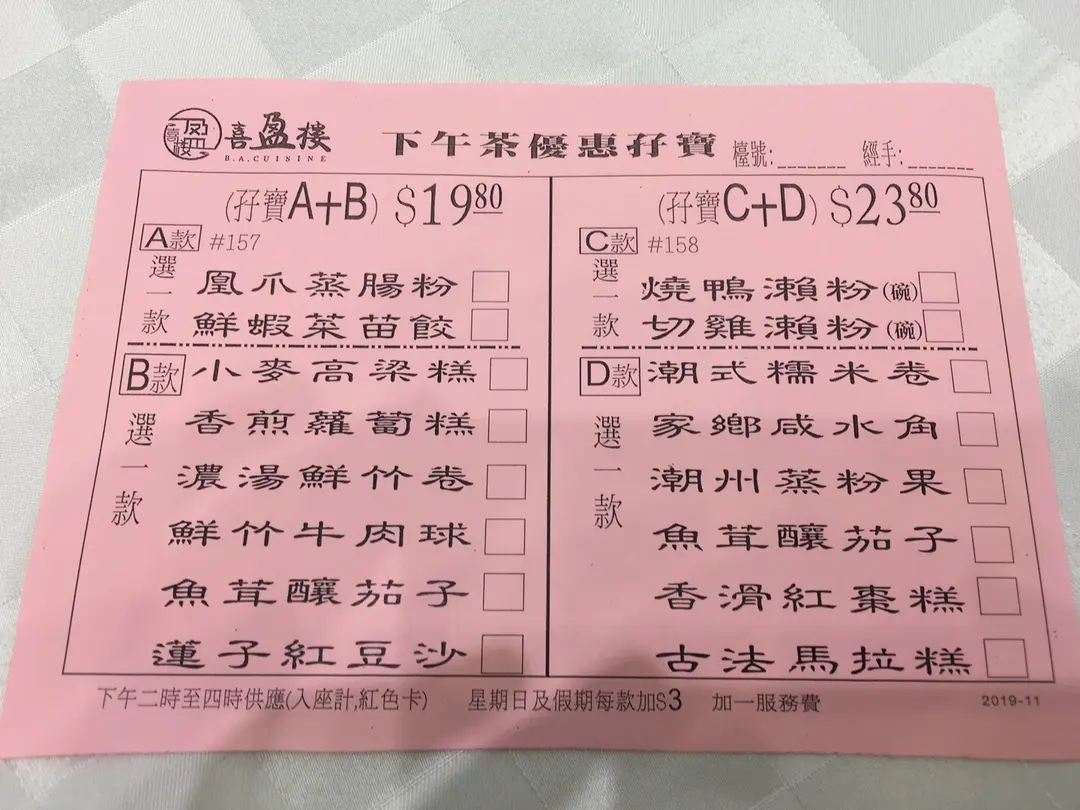 喜盈樓
B.A.CUISINE
下午茶優惠孖寶
檯號:______ 經手:______
(孖寶A+B) $19.80
A款 #157
選一款
鳳爪蒸腸粉
鮮蝦菜苗餃
B款
選一款
小麥高梁糕
香煎蘿蔔糕
濃湯鮮竹卷
鮮竹牛肉球
魚茸釀茄子
蓮子紅豆沙
(孖寶C+D) $23.80
C款 #158
選一款
燒鴨瀨粉(碗)
切雞瀨粉(碗)
D款
選一款
潮式糯米卷
家鄉咸水角
潮州蒸粉果
魚茸釀茄子
香滑紅棗糕
古法馬拉糕
下午二時至四時供應(入座計,紅色卡) 星期日及假期每款加$3 加一服務費
2019-11